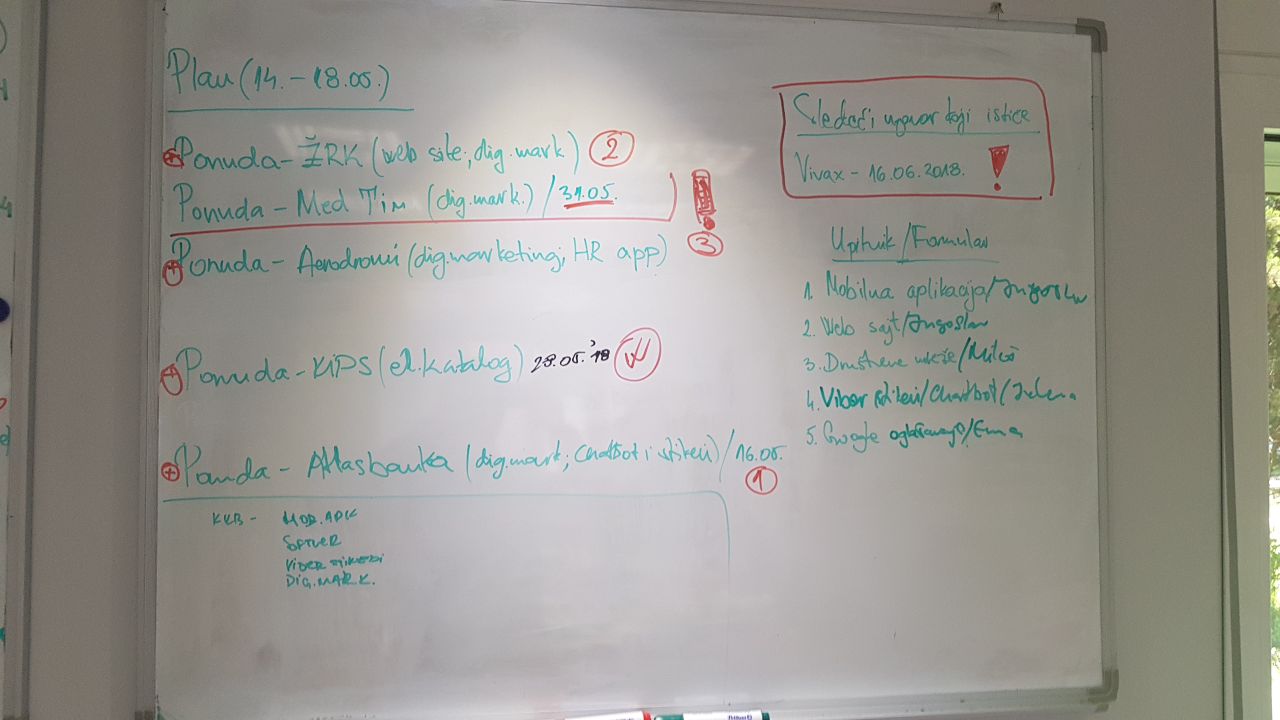 Plan (14. - 18.05.)
Ponuda - ŽRK (web site, dig. mark) 2
Ponuda - Med Tim (dig. mark.) / 31.05. !
Ponuda - Aerodromi (dig. marketing, HR app) 3
Ponuda - KIPS (el. katalog) 28.05.'18
Ponuda - Atlasbanka (dig. mark; Chatbot i stikeri) / 16.05. 1
MOB. APK
SOFTVER
VIBER STIKERI
DIG. MARK.
Sledeći ugovor koji ističe
Vivax - 16.06.2018. !
Upitnik / Formular
1. Mobilna aplikacija / Jugoslav
2. Web sajt / Jugoslav
3. Društvene mreže / Miloš
4. Viber stikeri / Chatbot / Jelena
5. Google oglašavanje / Ema